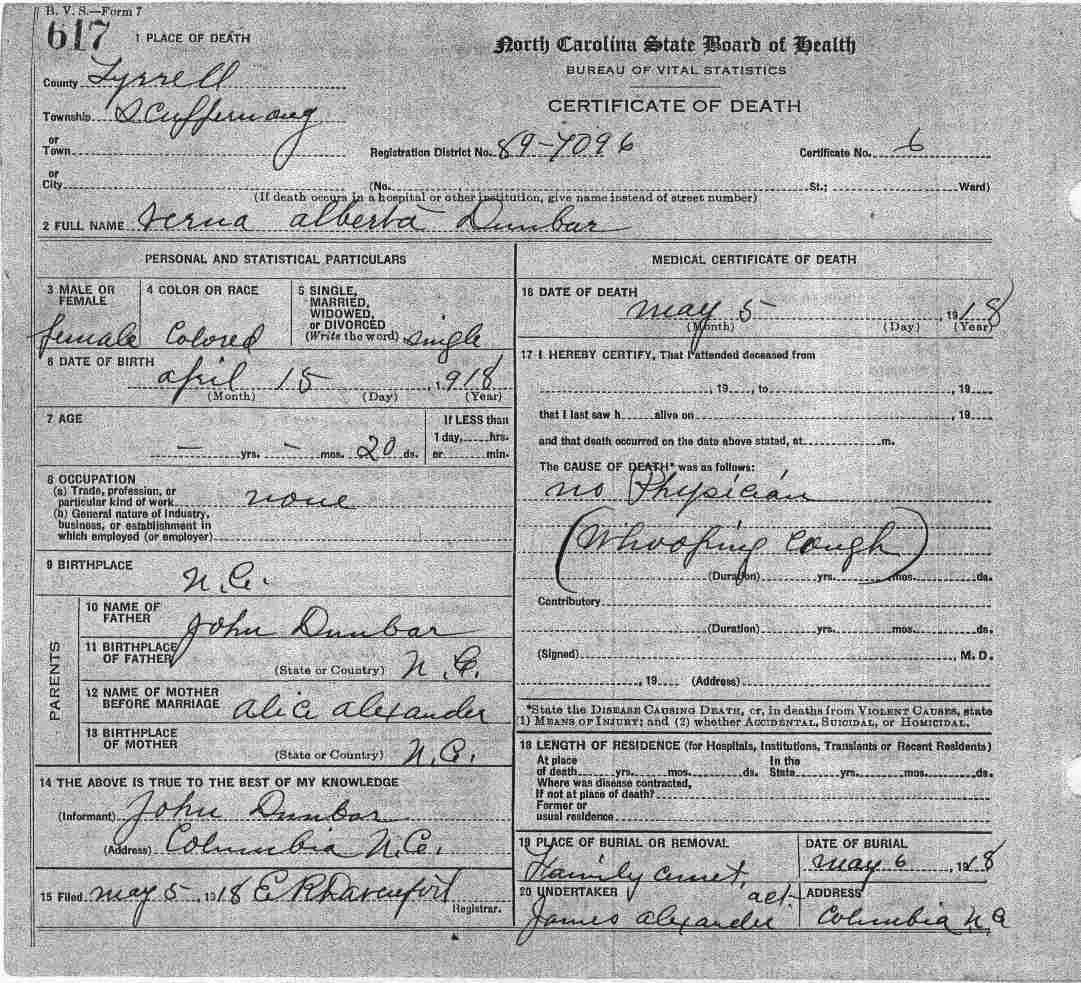 B. V. S.—Form 7
617
1 PLACE OF DEATH
North Carolina State Board of Health
BUREAU OF VITAL STATISTICS
CERTIFICATE OF DEATH
County Tyrrell
Township S. Cuppernong
or
Town
Registration District No. 89-7096 Certificate No. 6
or
City (No. St.; Ward)
(If death occurs in a hospital or other institution, give name instead of street number)
2 FULL NAME Verna Alberta Dunbar
PERSONAL AND STATISTICAL PARTICULARS
3 MALE OR
FEMALE
female
4 COLOR OR RACE
Colored
5 SINGLE,
MARRIED,
WIDOWED,
or DIVORCED
(Write the word) single
6 DATE OF BIRTH
april 15, 1918
(Month) (Day) (Year)
7 AGE
— yrs. — mos. 20 ds.
If LESS than
1 day, hrs.
or min.
8 OCCUPATION
(a) Trade, profession, or
particular kind of work none
(b) General nature of industry,
business, or establishment in
which employed (or employer)
9 BIRTHPLACE
N.C.
PARENTS
10 NAME OF
FATHER
John Dunbar
11 BIRTHPLACE
OF FATHER
(State or Country) N.C.
12 NAME OF MOTHER
BEFORE MARRIAGE alice alexander
13 BIRTHPLACE
OF MOTHER
(State or Country) N.C.
14 THE ABOVE IS TRUE TO THE BEST OF MY KNOWLEDGE
(Informant) John Dunbar
(Address) Columbia N.C.
15 Filed may 5, 1918 E R Davenport
Registrar.
MEDICAL CERTIFICATE OF DEATH
16 DATE OF DEATH
may 5, 1918
(Month) (Day) (Year)
17 I HEREBY CERTIFY, That I attended deceased from
, 19 , to , 19
that I last saw h alive on , 19
and that death occurred on the date above stated, at m.
The CAUSE OF DEATH* was as follows:
no Physician
(Whooping Cough)
(Duration) yrs. mos. ds.
Contributory
(Duration) yrs. mos. ds.
(Signed) , M. D.
, 19 (Address)
*State the DISEASE CAUSING DEATH, or, in deaths from VIOLENT CAUSES, state
(1) MEANS OF INJURY; and (2) whether ACCIDENTAL, SUICIDAL, or HOMICIDAL.
18 LENGTH OF RESIDENCE (for Hospitals, Institutions, Transients or Recent Residents)
At place
of death yrs. mos. ds.
In the
State yrs. mos. ds.
Where was disease contracted,
If not at place of death?
Former or
usual residence
19 PLACE OF BURIAL OR REMOVAL
Family cemet.
DATE OF BURIAL
may 6, 1918
20 UNDERTAKER act-
James alexander
ADDRESS
Columbia N.C.